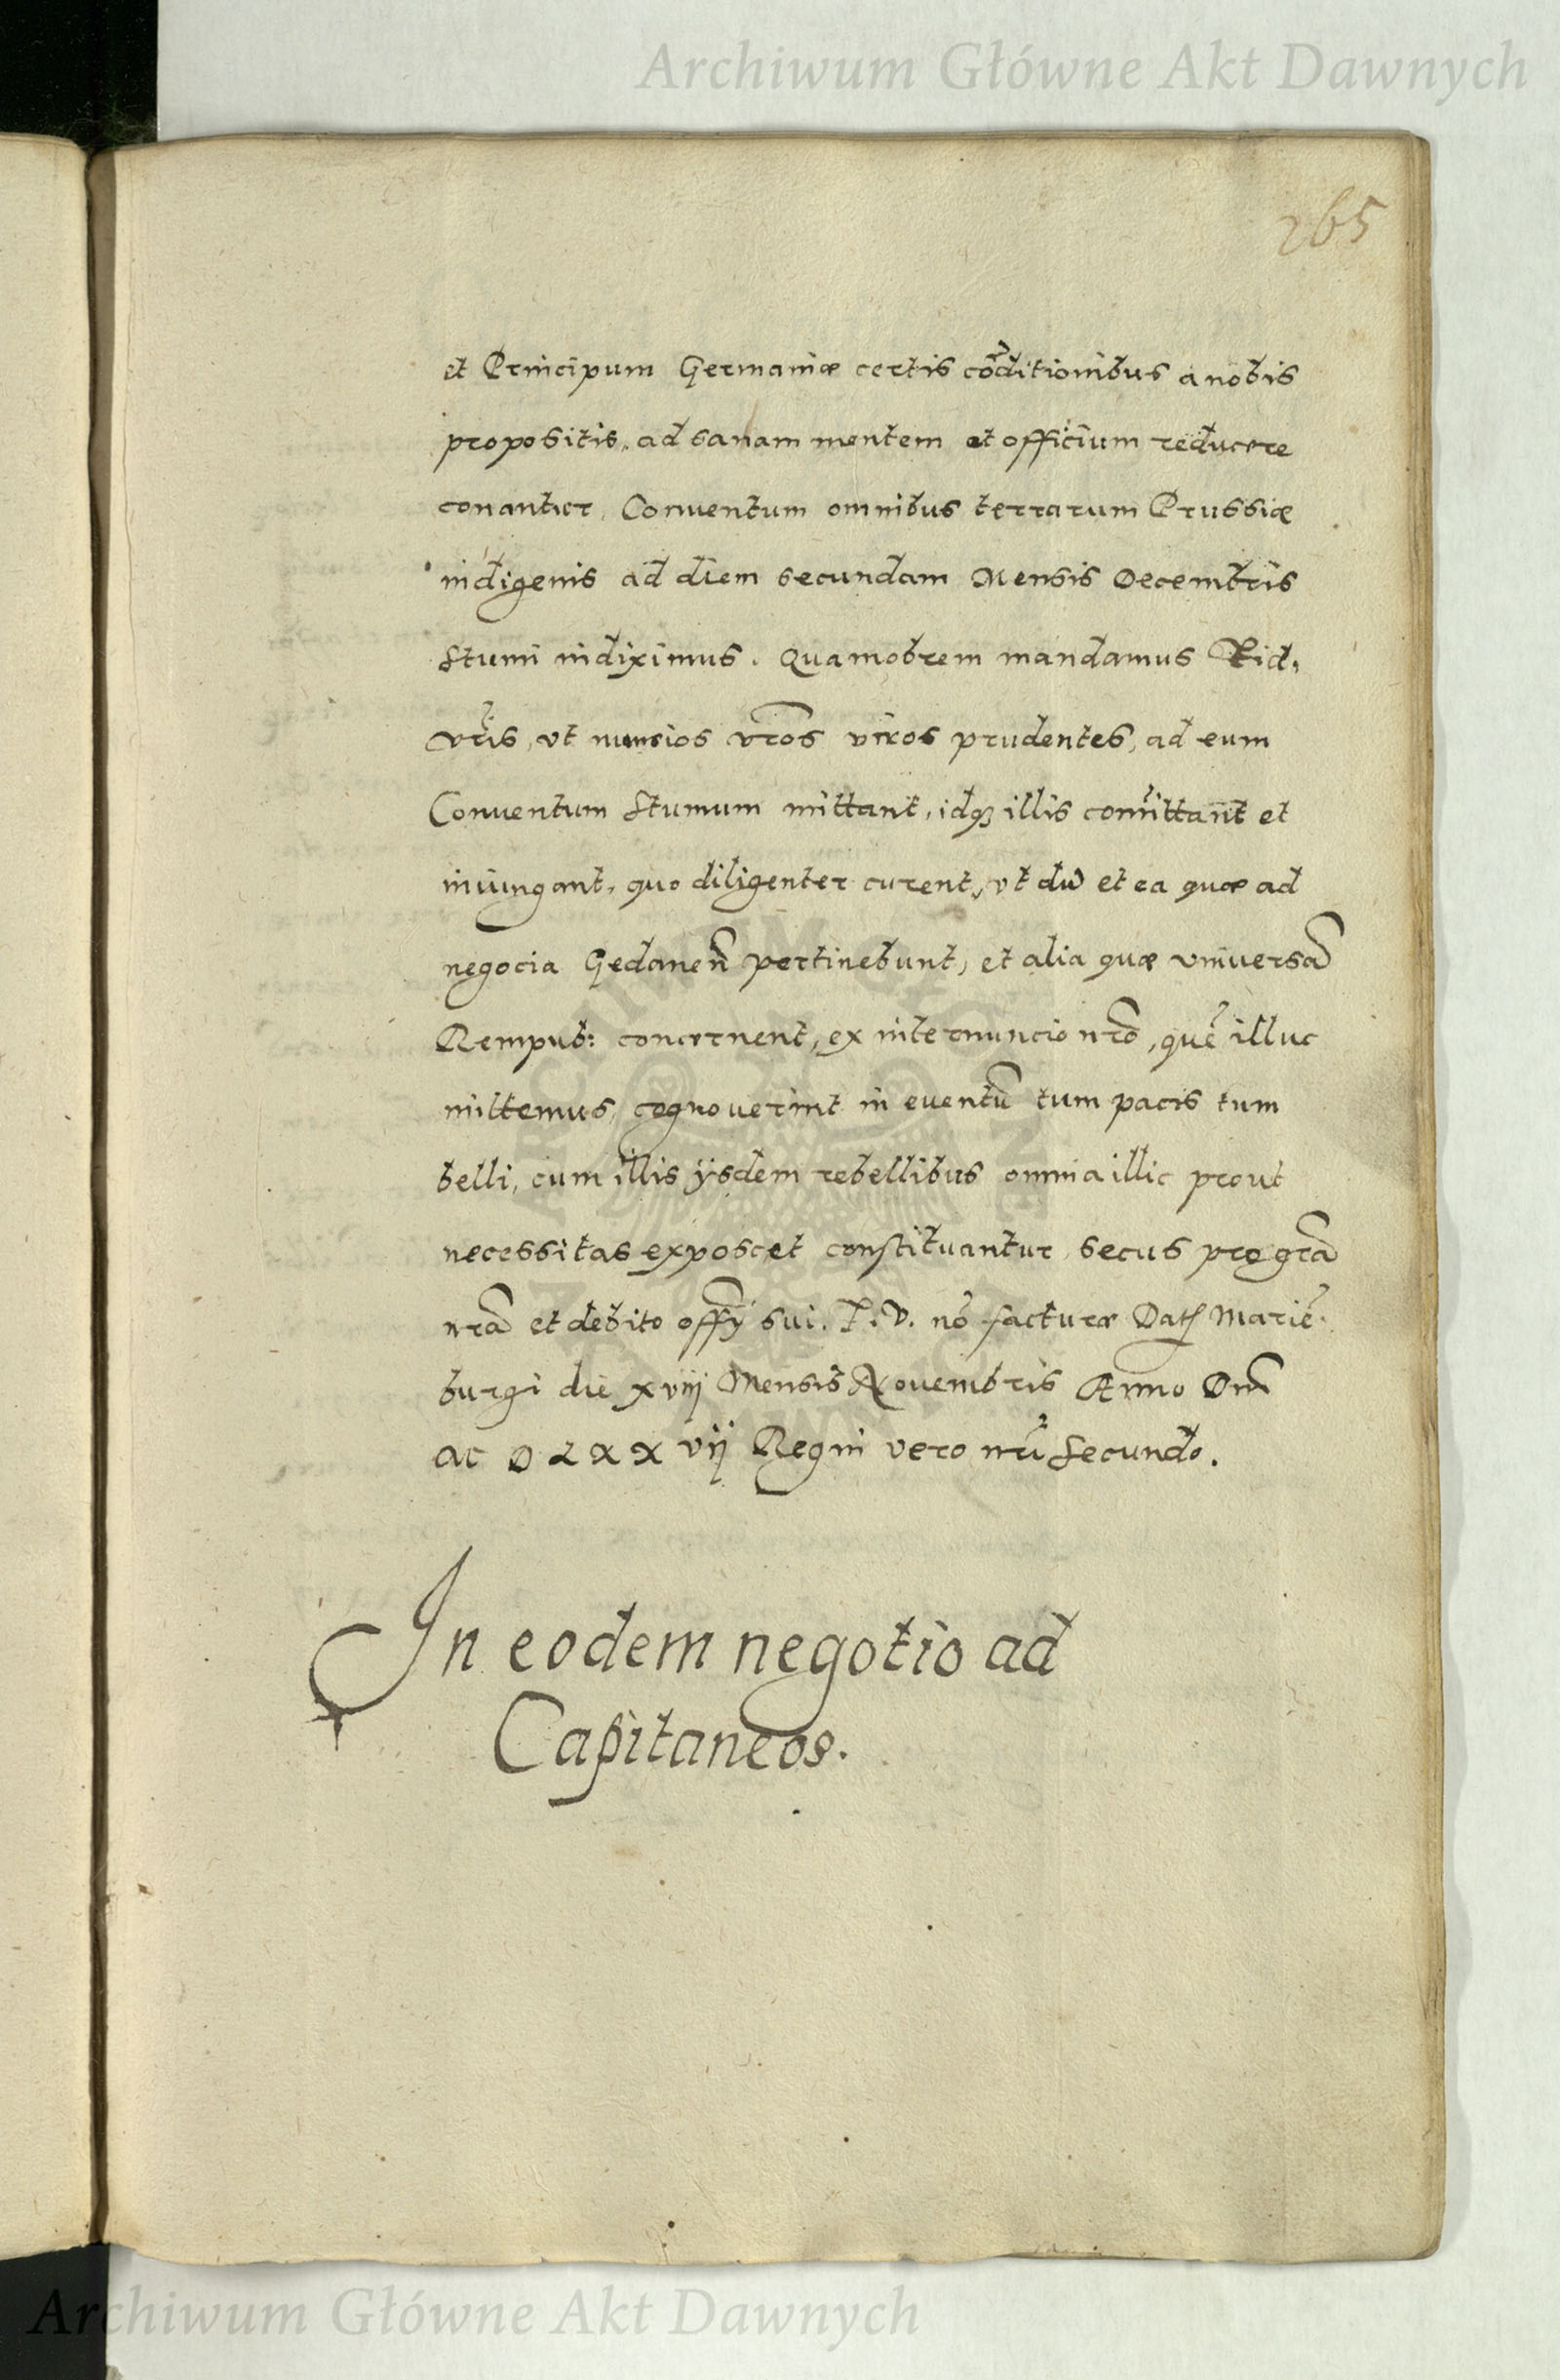 Archiwum Główne Akt Dawnych
265
et Principum Germaniæ certis cõditionibus a nobis
propositis, ad sanam mentem et officium reducere
conantur, Conuentum omnibus terrarum Prussiæ
indigenis ad diem secundam Mensis Decembris
Stumi indiximus. Quamobrem mandamus Fid,
vr̃is, vt nuncios vr̃os viros prudentes, ad eum
Conuentum Stumum mittant, idq3 illis com̃ittant et
iniungant, quo diligenter curent, vt dũ et ea quæ ad
negocia Gedaneñ pertinebunt, et alia quæ vniuersã
Rempub: concernent, ex internuncio nr̃o, quẽ illuc
mittemus, cognouerint in euentũ tum pacis tum
belli, cum illis ijsdem rebellibus omnia illic prout
necessitas exposcet constituantur, secus pro gr̃a
nr̃a et debito offĩj sui. F. V. nõ facturæ Dat Mariẽ
burgi die xviij Mensis Nouembris Anno Dnĩ
M D L X X vij Regni vero nr̃i Secundo.
In eodem negotio ad
Capitaneos.
Archiwum Główne Akt Dawnych